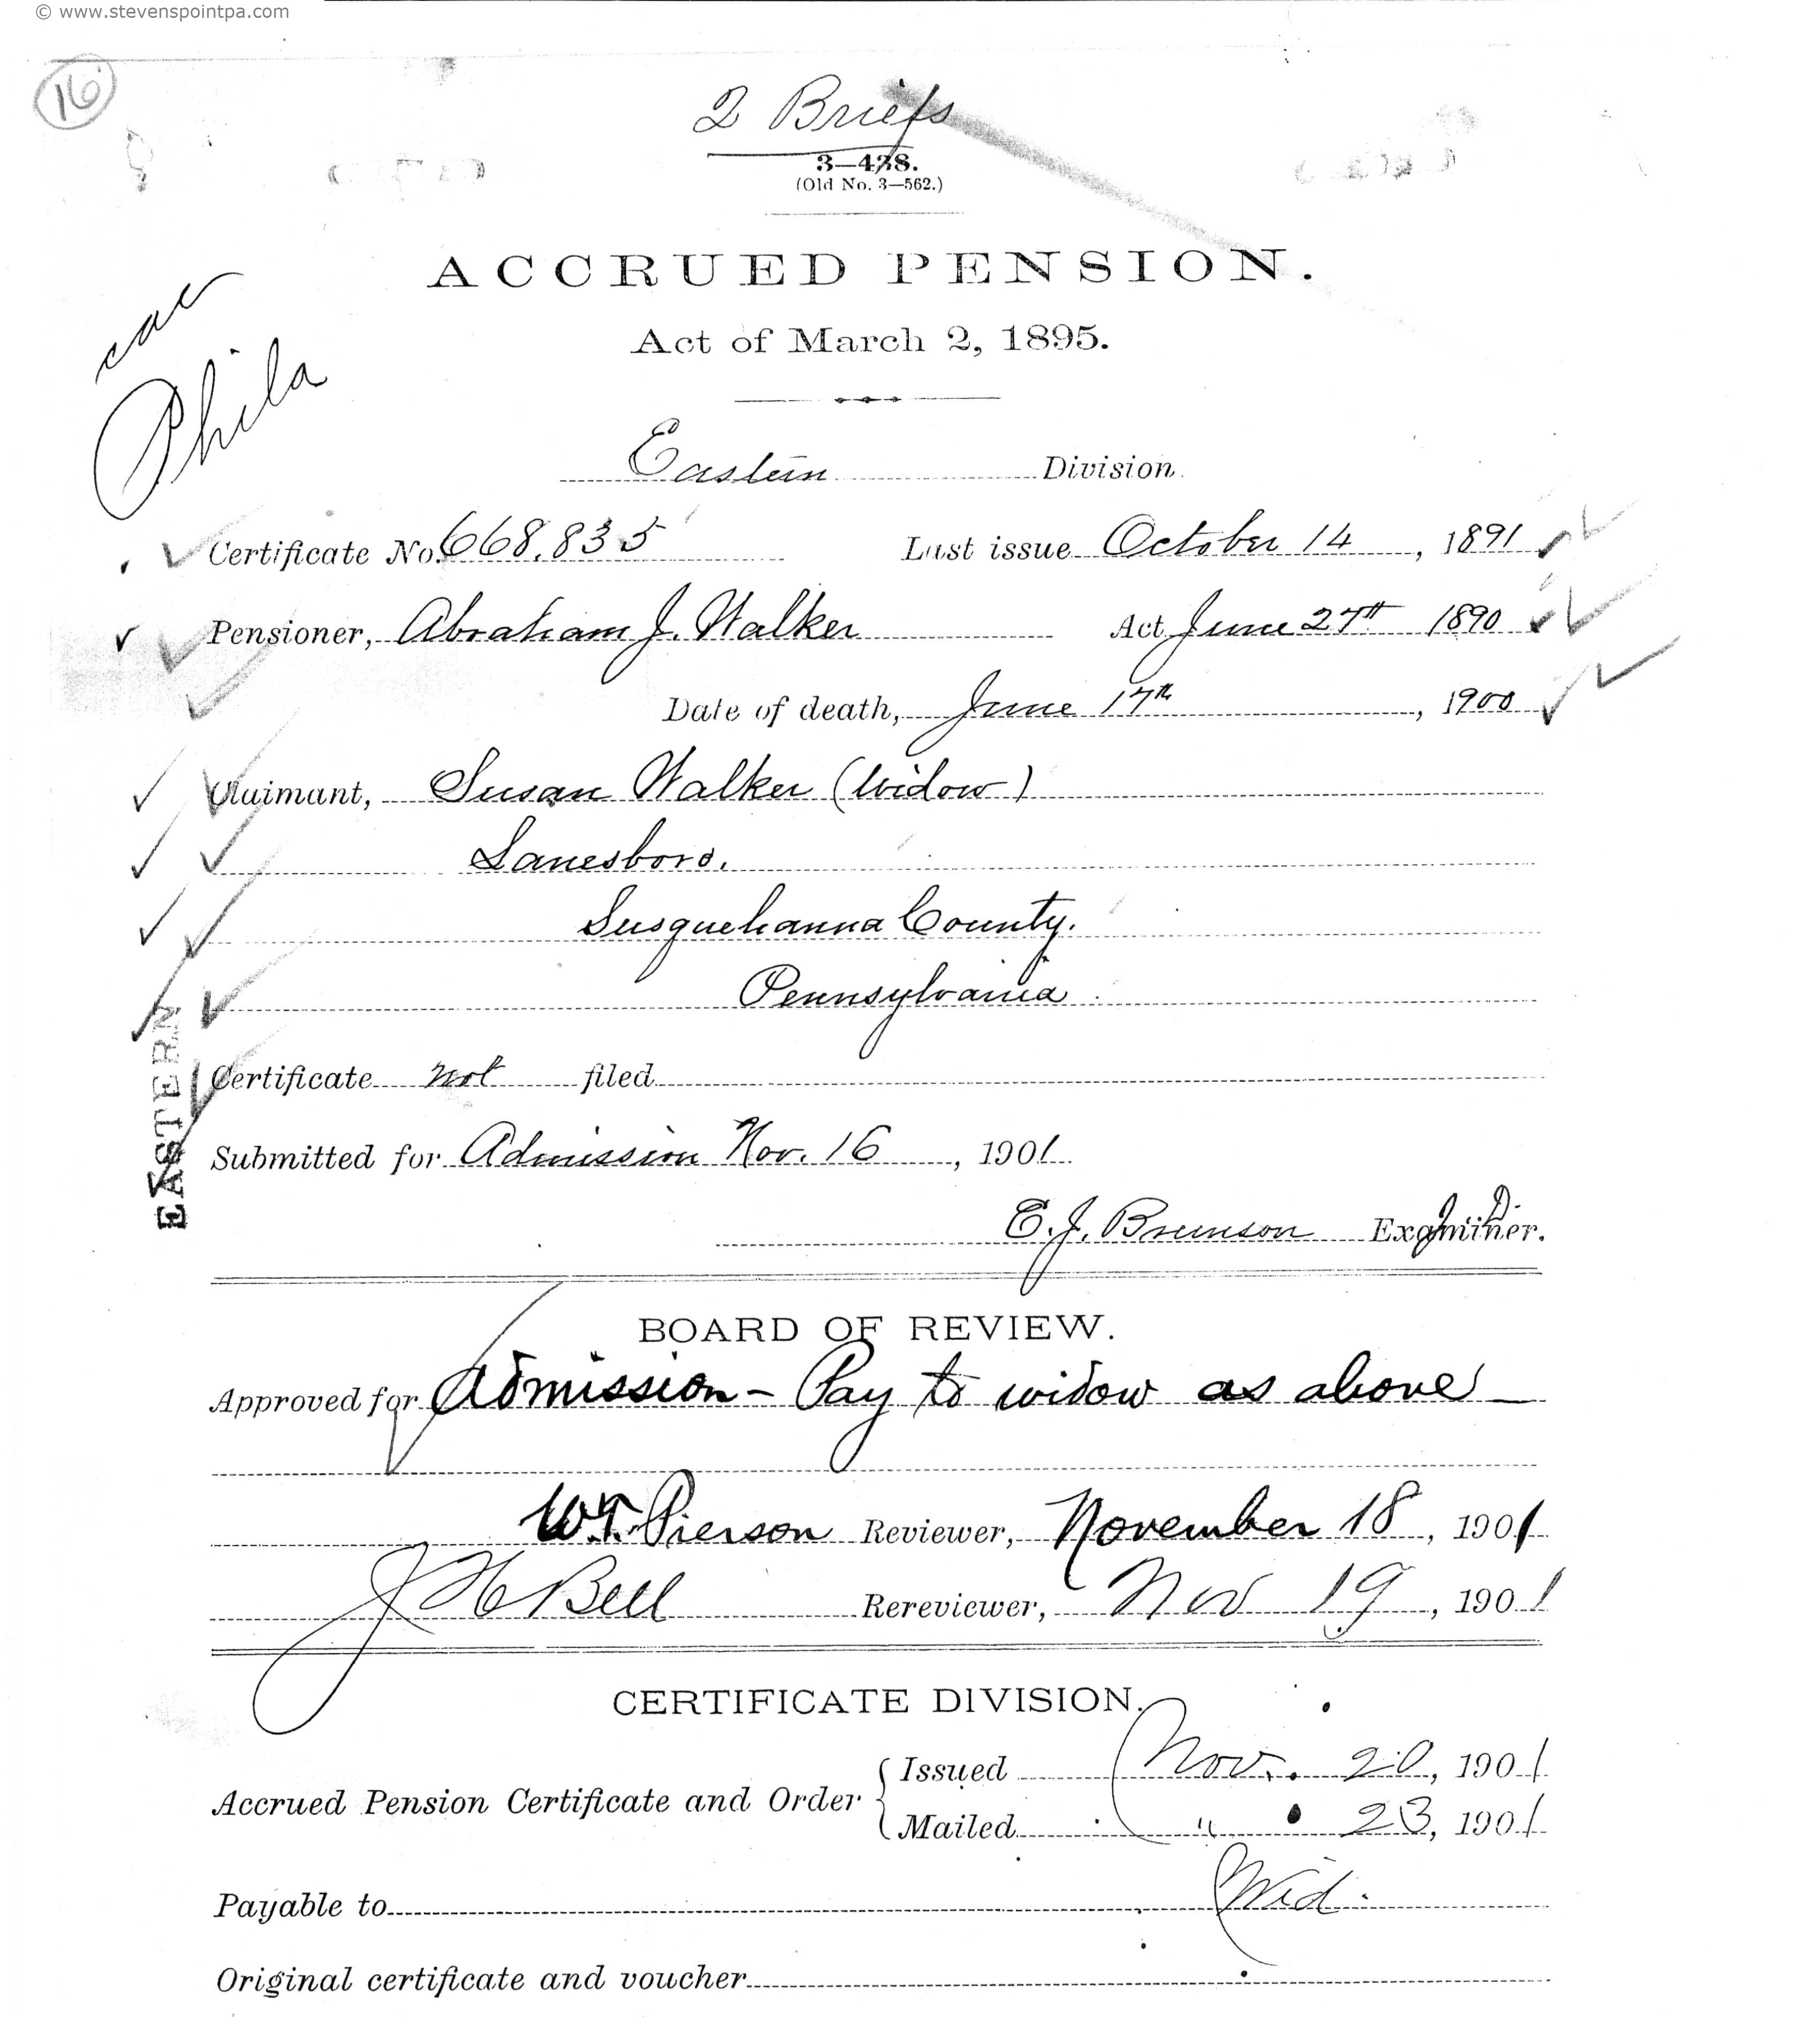 © www.stevenspointpa.com
16
2 Briefs
3—438.
(Old No. 3—562.)
ACCRUED PENSION.
Act of March 2, 1895.
Phila
Eastern Division.
Certificate No. 668,835 Last issue October 14, 1891
Pensioner, Abraham J. Walker Act June 27th 1890
Date of death, June 17th, 1900
Claimant, Susan Walker (Widow)
Lanesboro.
Susquehanna County.
Pennsylvania
EASTERN
Certificate not filed
Submitted for Admission Nov. 16, 1901
E. J. Brunson Examiner.
BOARD OF REVIEW.
Approved for Admission – Pay to widow as above –
Pierson Reviewer, November 18, 1901
J H Bell Rereviewer, Nov 19, 1901
CERTIFICATE DIVISION.
Accrued Pension Certificate and Order { Issued Nov. 20, 1901
Mailed " 23, 1901
Payable to Wid.
Original certificate and voucher